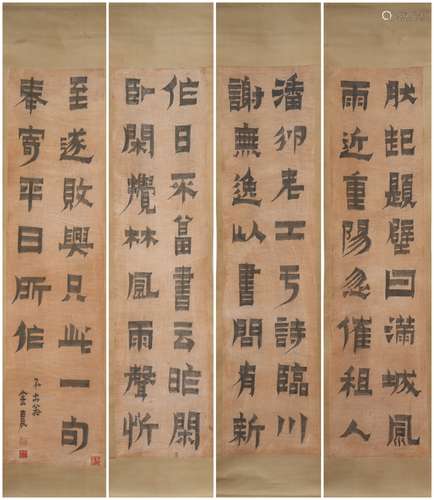 肰起題壁曰滿城風
雨近重陽忽催租人
潘邠老工亏詩臨川
謝無逸以書問有新
作日來畣書云昨閑
卧閑攪林風雨聲忻
至遂敗興只此一句
奉寄平日所作
不出翁
金農